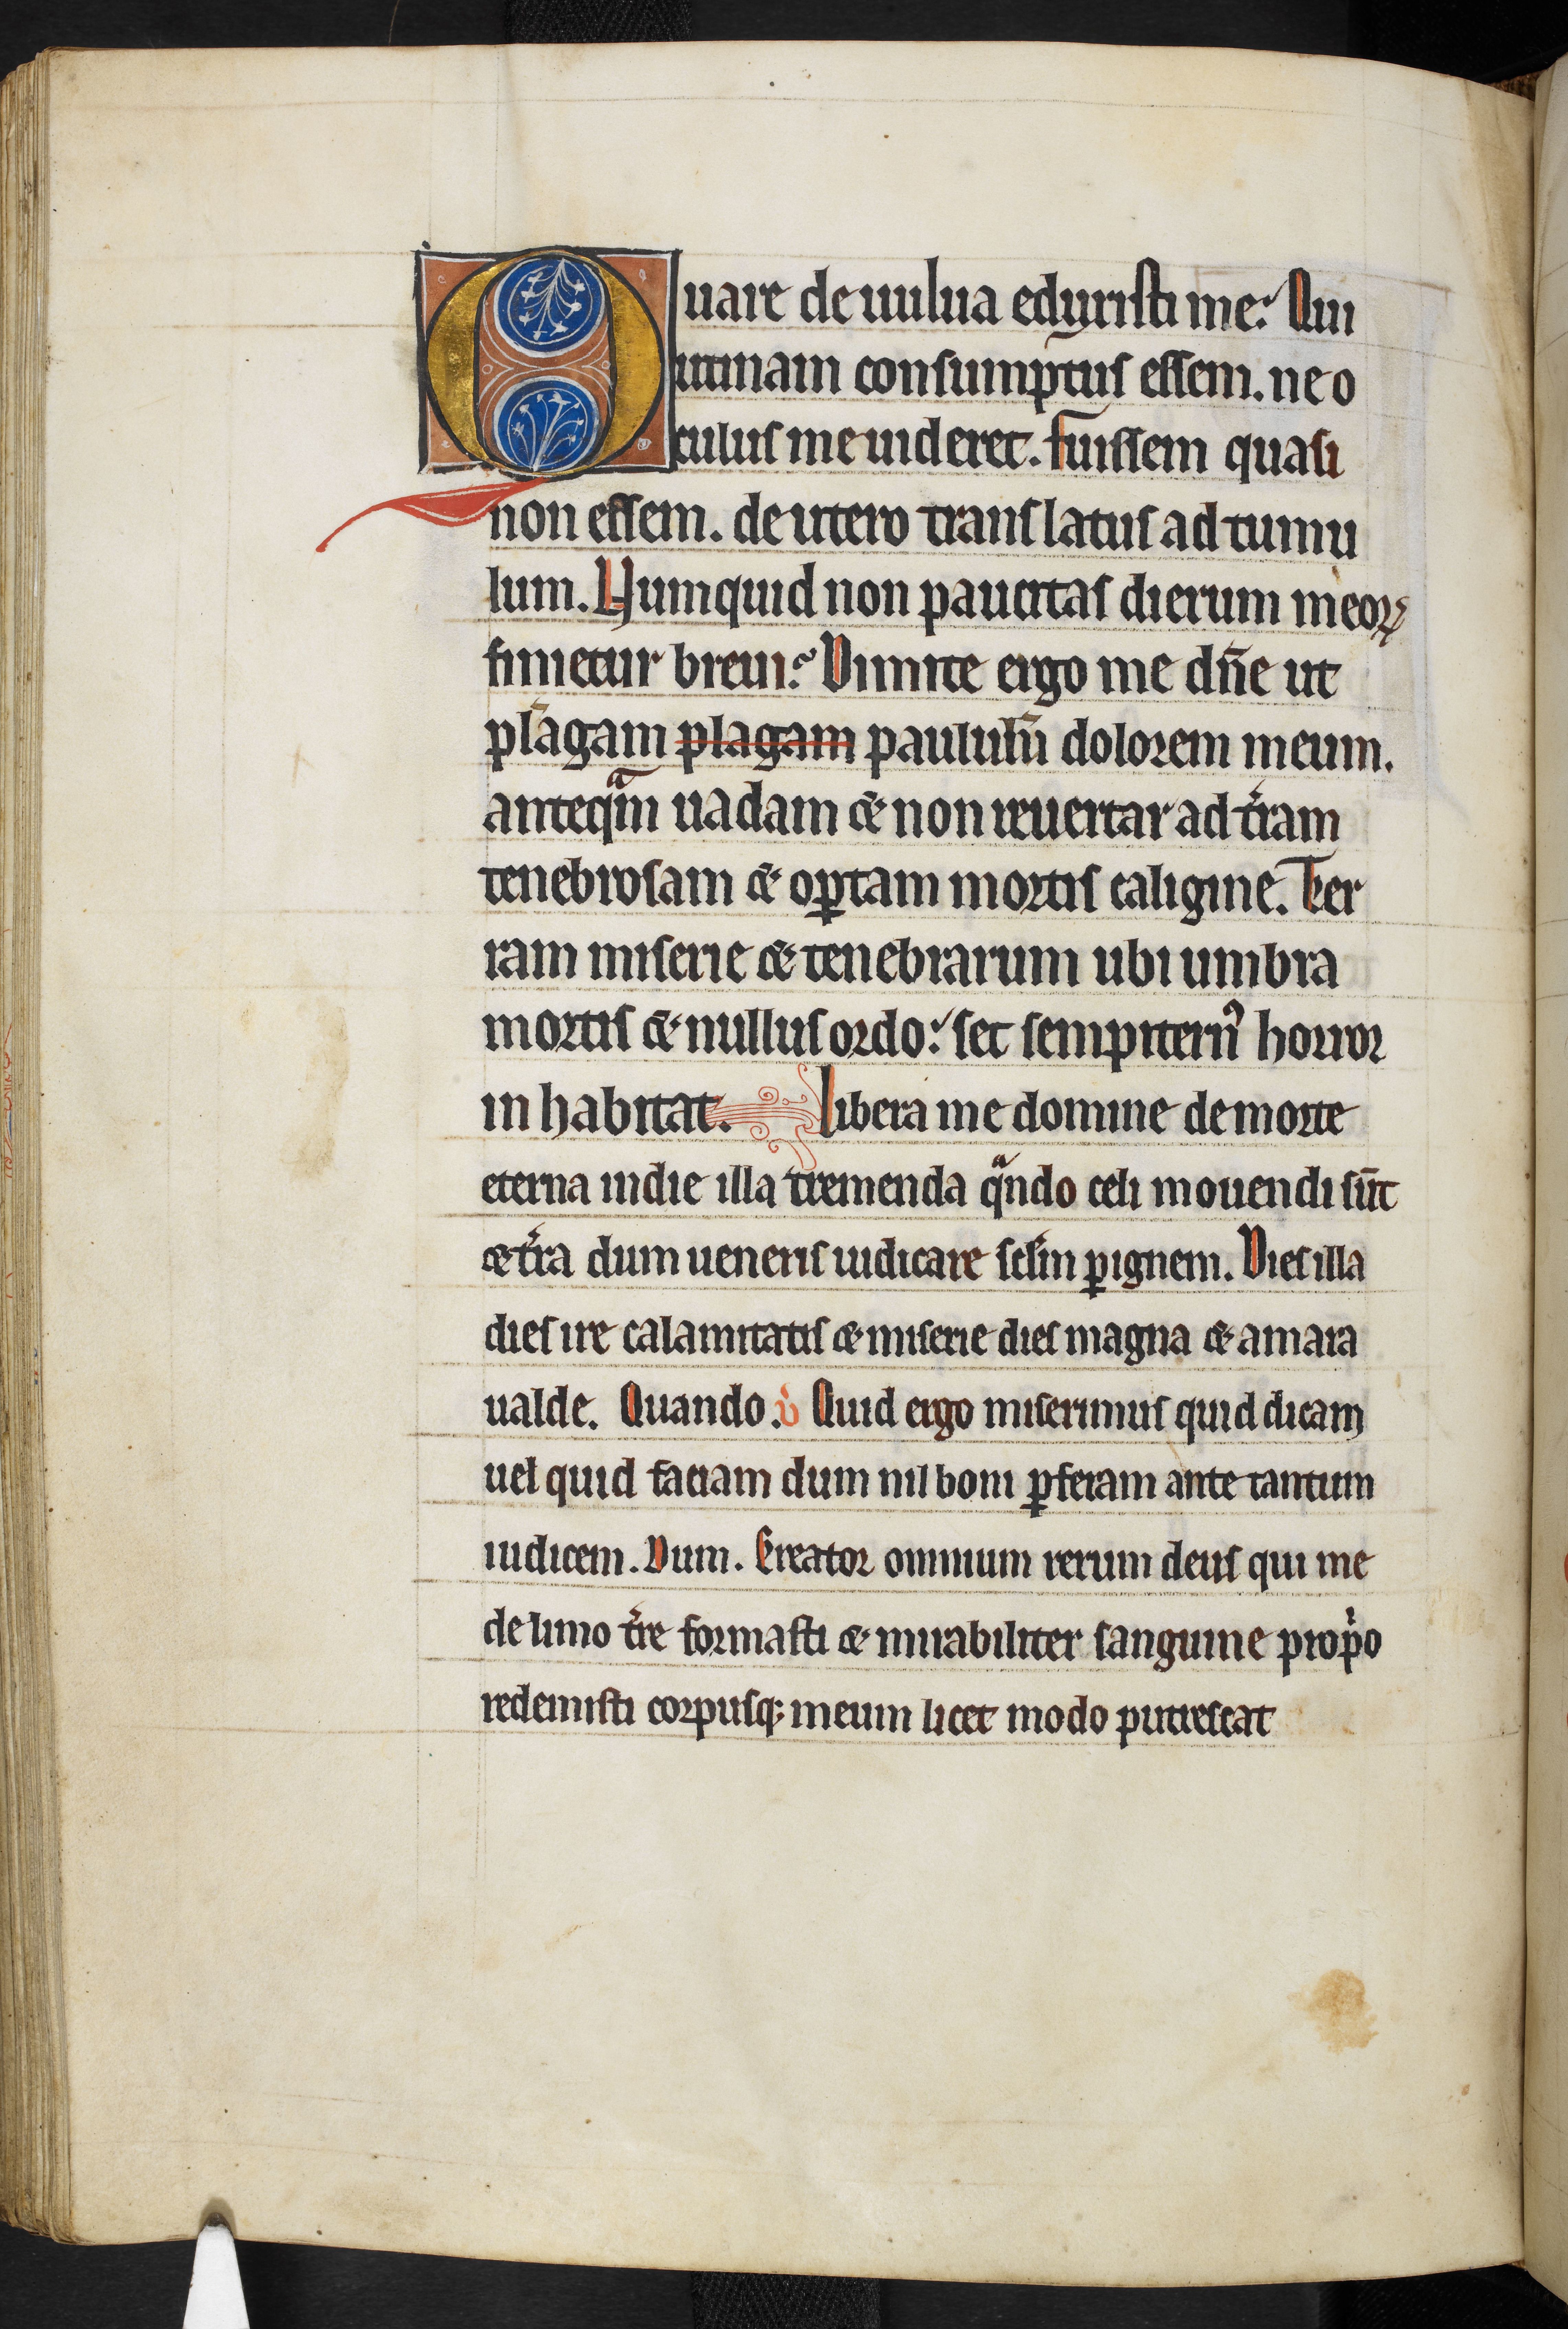 Quare de uulua eduxisti me? Qui
utinam consumptus essem. ne o
culus me uideret. Fuissem quasi
non essem. de utero translatus ad tumu
lum. Numquid non paucitas dierum meoꝝ
finietur breui? Dimitte ergo me dn̄e ut
plāgam plagam paululū dolorem meum.
anteqᵃm uadam & non reuertar ad t̄ram
tenebrosam & oꝑtam mortis caligine. Ter
ram miserie & tenebrarum ubi umbra
mortis & nullus ordo: set sempiternꝰ horror
in habitat. Libera me domine de morte
eterna in die illa tremenda qᵃndo celi mouendi sūt
& t̄ra dum ueneris iudicare sclm̄ ꝑ ignem. Dies illa
dies ire calamitatis & miserie dies magna & amara
ualde. Quando. v̇ Quid ergo miserimus quid dicam
uel quid faciam dum nil boni ꝑferam ante tantum
iudicem. Dum. Creator omnium rerum deus qui me
de limo t̄re formasti & mirabiliter sanguine propⁱo
redemisti corpusqꝫ meum licet modo putrescat